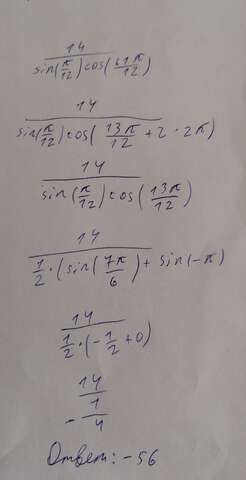 14
sin(π/12) cos(61π/12)
14
sin(π/12) cos(13π/12 + 2 · 2π)
14
sin(π/12) cos(13π/12)
14
1/2 · (sin(7π/6) + sin(-π)
14
1/2 · (-1/2 + 0)
14
- 1/4
Ответ: -56